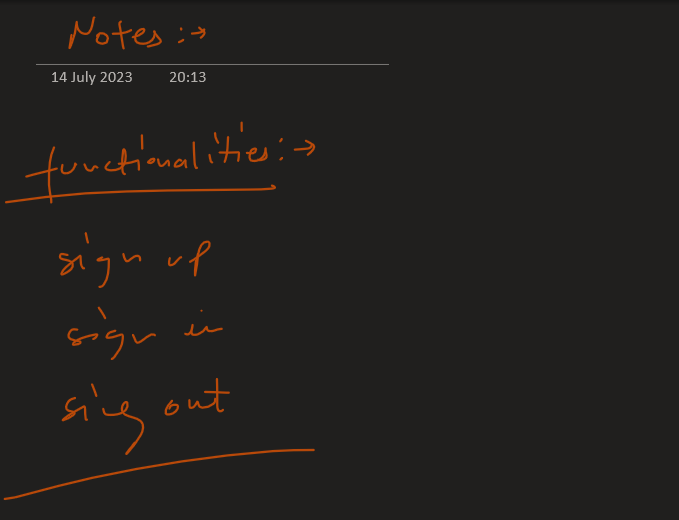 Notes :→
14 July 2023 20:13
functionalities :→
sign up
sign in
sing out